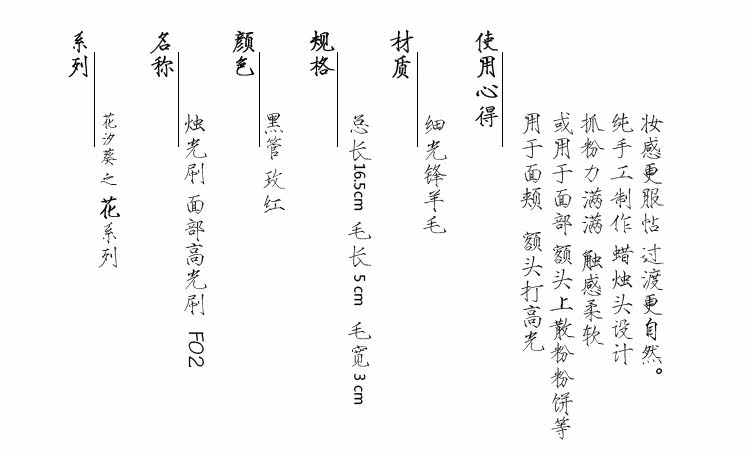 系列
花汐葵之花系列
名称
烛光刷 面部高光刷 F02
颜色
黑管 玫红
规格
总长16.5cm 毛长 5cm 毛宽 3cm
材质
细光锋羊毛
使用心得
用于面颊 额头打高光
或用于面部额头上散粉粉饼等
抓粉力满满 触感柔软
纯手工制作 蜡烛头设计
妆感更服帖 过渡更自然。